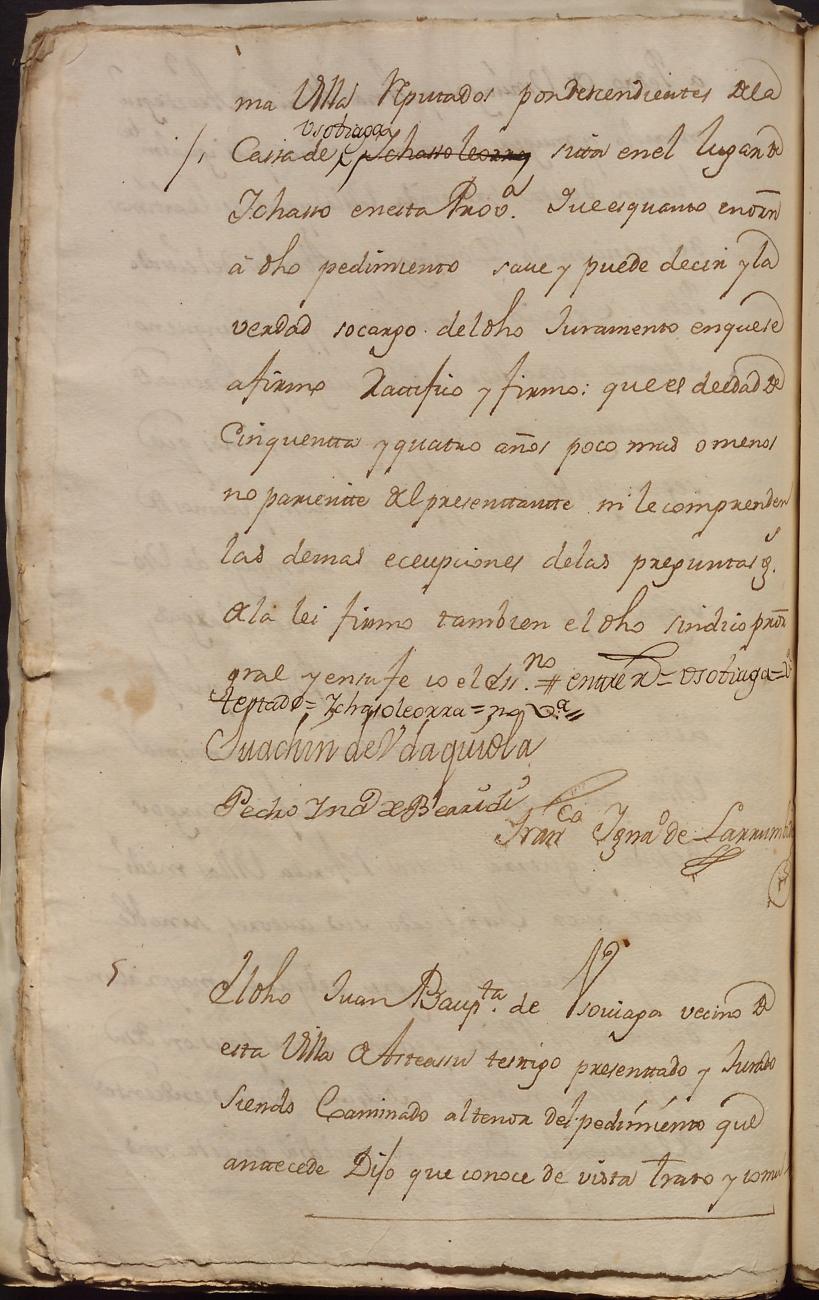 ma Villa Reputados por descendientes dela
Usotiaga
Cassa de Ichasso leorra sita en el lugar de
Ichasso en esta Prov.ª Que es quanto en orn
â dho pedimento save y puede decir y la
verdad so cargo del dho Juramento en que se
afirmo Ratifico y firmo: que es de edad de
Cinquentta y quatro años poco mas o menos
no pariente del presenttantte ni le comprenden
las demas eceupciones delas preguntas g.s
dela lei firmo tambien el dho sindico pror
gral y en su fe io el ess.no # entre R.s = Usotiaga =
testado = Ichasoleorra = no V.ª =
Juachin de Udaquiola
Pedro Ind de Berridi
Fran.co Igna.o de Larrum
5
El dho Juan Baup.ta de Usoviaga vecino de
esta Villa de Asteasu testigo presenttado y Jurado
siendo Examinado al tenor del pedimiento que
anttecede Dijo que conoce de vista trato y comu